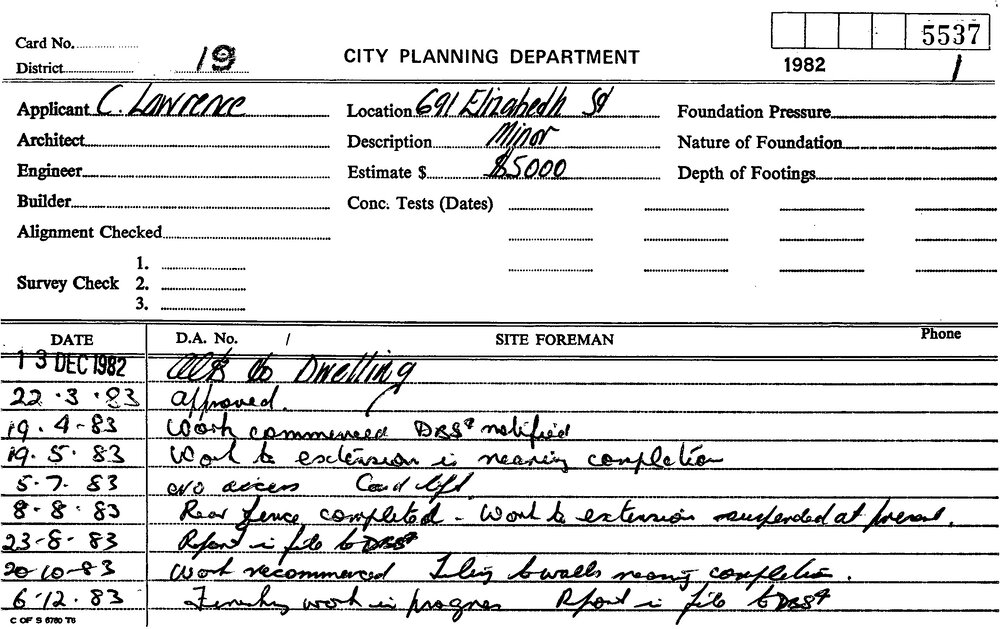 5537
Card No.
District 19 CITY PLANNING DEPARTMENT 1982 1
Applicant C. Lawrence Location 691 Elizabedh St Foundation Pressure
Architect Description Minor Nature of Foundation
Engineer Estimate $ $5000 Depth of Footings
Builder Conc. Tests (Dates)
Alignment Checked
Survey Check 1.
2.
3.
DATE D.A. No. / SITE FOREMAN Phone
13 DEC 1982 to Dwelling
22.3.83 approved.
19.4-83 Work commenced DBS notified
19.5.83 Work to extension is nearing completion
5.7.83 No access Card left
8-8.83 Rear fence completed - Work to extension suspended at present.
23-8-83 Report in file to DBS
20-10-83 Work recommenced Tiling to walls nearing completion.
6.12.83 Finishing work in progress Report in file to DBS
C OF S 6760 T6